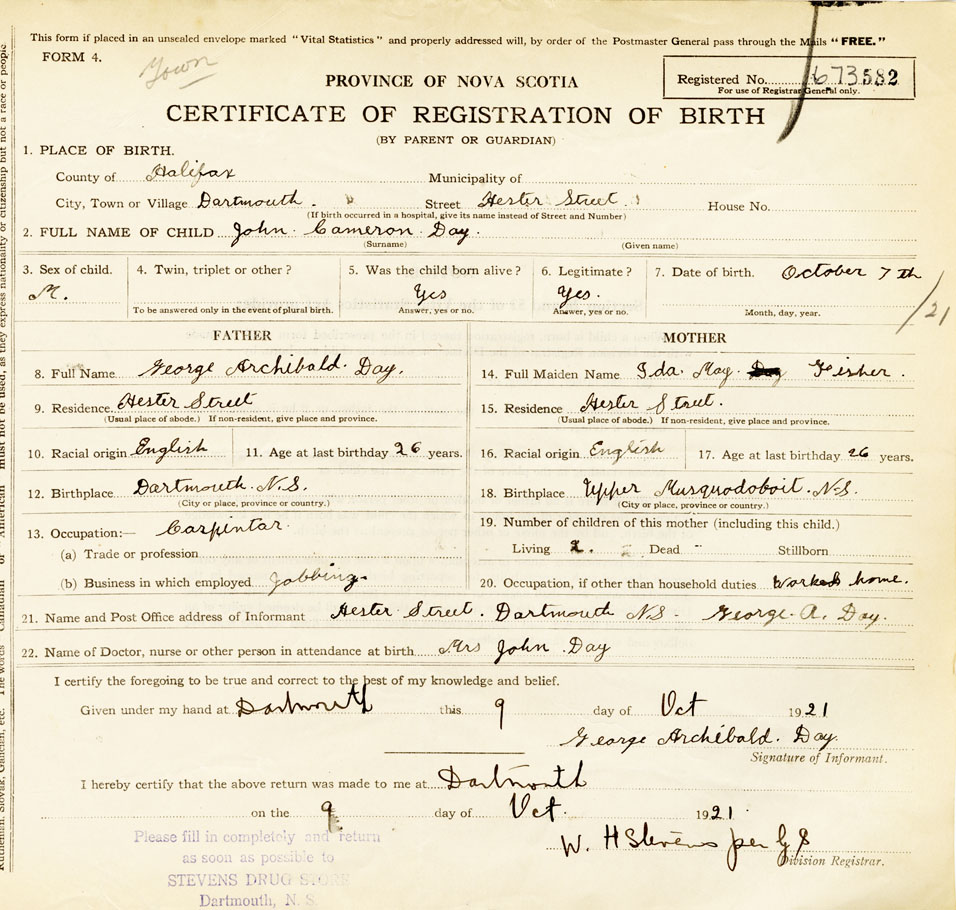 This form if placed in an unsealed envelope marked "Vital Statistics" and properly addressed will, by order of the Postmaster General pass through the Mails "FREE."
FORM 4.
Town
PROVINCE OF NOVA SCOTIA
Registered No. 673582
For use of Registrar General only.
CERTIFICATE OF REGISTRATION OF BIRTH
(BY PARENT OR GUARDIAN)
1. PLACE OF BIRTH.
County of Halifax Municipality of
City, Town or Village Dartmouth. Street Hester Street. House No.
(If birth occurred in a hospital, give its name instead of Street and Number)
2. FULL NAME OF CHILD John Cameron Day.
(Surname) (Given name)
3. Sex of child. 4. Twin, triplet or other? 5. Was the child born alive? 6. Legitimate? 7. Date of birth. October 7th
M. Yes Yes. /21
To be answered only in the event of plural birth. Answer, yes or no. Answer, yes or no. Month, day, year.
FATHER MOTHER
8. Full Name George Archibald Day. 14. Full Maiden Name Ida May Day Fisher.
9. Residence. Hester Street 15. Residence Hester Street.
(Usual place of abode.) If non-resident, give place and province. (Usual place of abode.) If non-resident, give place and province.
10. Racial origin English 11. Age at last birthday 26 years. 16. Racial origin English 17. Age at last birthday 26 years.
12. Birthplace Dartmouth. N.S. 18. Birthplace Upper Musquodoboit. N.S.
(City or place, province or country.) (City or place, province or country.)
13. Occupation:— Carpintar 19. Number of children of this mother (including this child.)
(a) Trade or profession Living 2. Dead - Stillborn
(b) Business in which employed Jobbing. 20. Occupation, if other than household duties. Worked home.
21. Name and Post Office address of Informant Hester Street. Dartmouth N.S - George. A. Day.
22. Name of Doctor, nurse or other person in attendance at birth Mrs John Day
I certify the foregoing to be true and correct to the best of my knowledge and belief.
Given under my hand at Dartmouth this 9 day of Oct 1921
George Archibald. Day.
Signature of Informant.
I hereby certify that the above return was made to me at Dartmouth
on the 9 day of Oct. 1921.
W. H Stevens per G S
Division Registrar.
Please fill in completely and return
as soon as possible to
STEVENS DRUG STORE
Dartmouth, N. S.